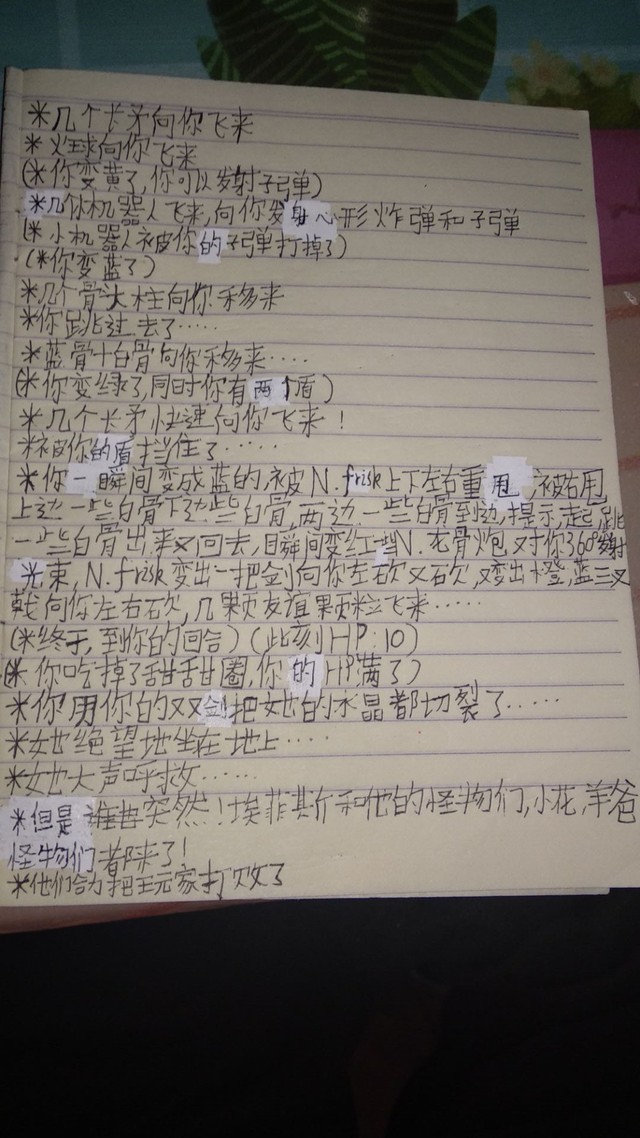 *几个长矛向你飞来
*火球向你飞来
(*你变黄了,你可以发射子弹)
*几似机器人飞来,向你发射心形炸弹和子弹
(*小机器人被你的子弹打掉了)
(*你变蓝了)
*几个骨头柱向你移来
*你跳过去了……
*蓝骨+白骨向你移来……
(*你变绿了,同时你有两个盾)
*几个长矛快速向你飞来!
*被你的盾挡住了……
*你一瞬间变成蓝的,被N.frisk上下左右重甩,被右甩
上边一些白骨下边些白骨,两边一些白骨到边,提示,起跳
一些白骨出来又回去,瞬间变红N.龙骨炮又对你360°射
光束,N.frisk变出一把剑向你左砍又右砍,又变出橙,蓝三叉
戟向你左右砍,几颗友谊颗粒飞来……
(*终于,到你的回合)(此刻HP:10)
(*你吃掉了甜甜圈,你的HP满了)
*你用你的双剑把她的水晶都切裂了……
*她绝望地坐在地上……
*她大声呼救……
*但是谁也突然!埃菲斯和他的怪物们,小花,羊爸
怪物们都来了!
*他们合力把王元家打败了